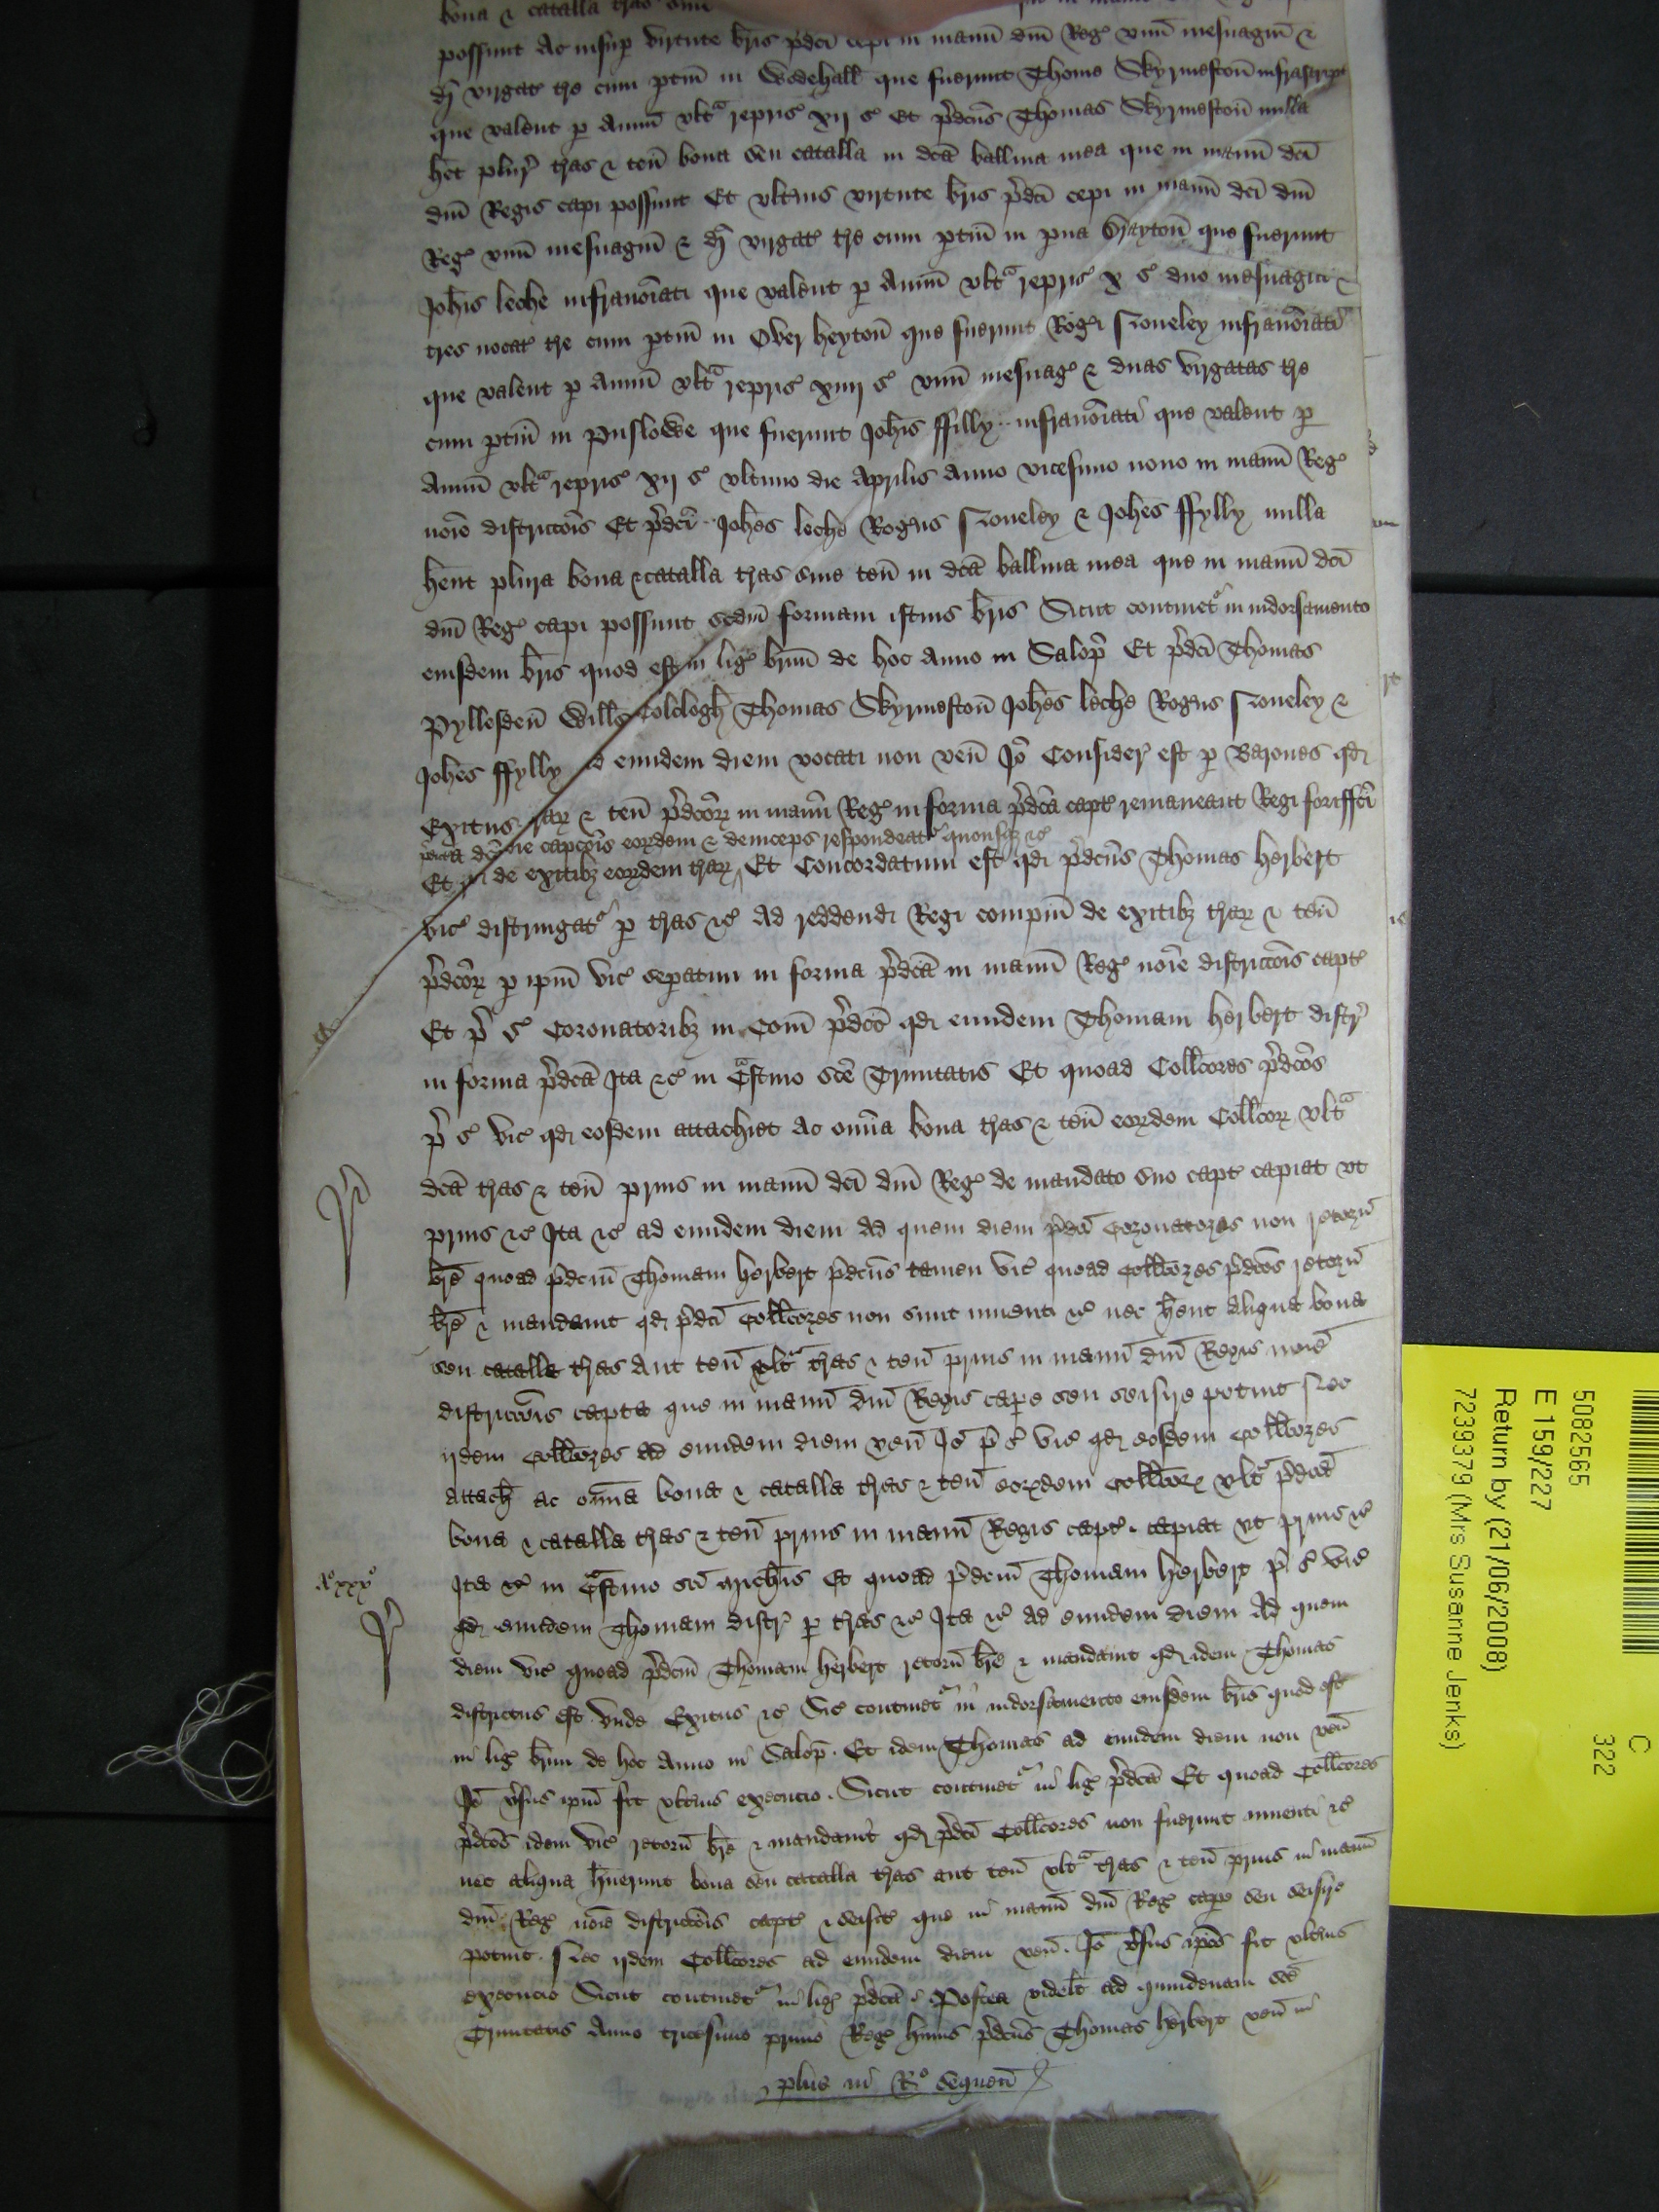 bona & catalla tras siue
possunt Ac insup virtute bris pdci cepi in manu dni Reg vnu mesuagiu &
di virgat tre cum ptin in Wodehall que fuerunt Thome Skyrmeston infrascript
que valent p Annu vlta repris xij s Et pdcus Thomas Skyrmeston nulla
het plur tras & ten bona seu catalla in dca balliua mea que in manu dci
dni Regis capi possunt Et vlterius virtute bris pdci cepi in manu dci dni
Reg vnu mesuagiu & di virgat tre cum ptin in pua que fuerunt
Johis leche infranoiati que valent p Annu vlta repris x s duo mesuagia &
tres nocat tre cum ptin in Over heyton que fuerunt Rogi Noneley infranoiati
que valent p Annu vlta repris xiiij s vnu mesuag & duas virgatas tre
cum ptin in Puslowe que fuerunt Johis ffilly infranoiati que valent p
Annu vlta repris xij s vltimo die Aprilis Anno vicesimo nono in manu Reg
noie districcois Et pdci Johes leche Rogus Noneley & Johes ffylly nulla
hent plura bona & catalla tras siue ten in dca balliua mea que in manu dci
dni Reg capi possunt scdm formam istius bris Sicut continet in indorsamento
eiusdem bris quod est in lig briu de hoc Anno in Salop Et pdci Thomas
Pyllesden Wills Colclogh Thomas Skyrmeston Johes leche Rogus Noneley &
Johes ffylly ad eundem diem vocati non ven Io Consider est p Barones qd
Exitus trar & ten pdcor in manu Reg in forma pdca capt remaneant Regi foriffci
captois eordem & deinceps respondeat quousq &c
Et qd de exitibz eordem trar Et Concordatum est qd pdcus Thomas herbert
vic distringat p tras &c Ad reddend Regi compm de exitibz trar & ten
pdcor p ipm vic sepatim in forma pdca in manu Reg noie districcois capt
Et p s Coronatoribz in Com pdco qd eundem Thomam herbert distr
in forma pdca Ita &c in Cstino sce Trinitatis Et quoad Collcores pdcos
p s vic qd eosdem attachiet Ac omia bona tras & ten eordem Collcor vlta
dca tras & ten prius in manu dci dni Reg de mandato suo capt capiat vt
prius &c Ita &c ad eundem diem Ad quem diem pdci Coronatores non retorn
bre quoad pdcm Thomam herbert pdcus tamen vic quoad Collcores pdcos retorn
bre & mandauit qd pdci Collcores non sunt inuenti &c nec hent aliqua bona
seu catalla tras Aut ten vlta tras & ten prius in manu dni Regis noie
districcois capta que in manu dni Regis cape seu seisire potuit Nec
ijdem Collcores ad eundem diem ven Io p s vic qd eosdem Collcores
Attach ac omia bona & catalla tras & ten eordem Collcor vlta pdca
bona & catalla tras & ten prius in manu Regis capt capiat vt prius &c
Ro xxxo
Ita &c in Cstino sci Michis Et quoad pdcm Thomam herbert p s vic
qd eundem Thomam distr p tras &c Ita &c ad eundem diem Ad quem
diem vic quoad pdcm Thomam herbert retorn bre & mandauit qd idem Thomas
districtus est vnde Exitus &c Sic continet in indorsamento eiusdem bris quod est
in lig briu de hoc Anno in Salop. Et idem Thomas ad eundem diem non ven
Io vsus ipm fit vlterius execucio. Sicut continet in lig pdca Et quoad Collcores
pdcos idem vic retorn bre & mandauit qd pdci Collcores non fuerunt inuenti &c
nec aliqua huerunt bona seu catalla tras aut ten vlta tras & ten prius in manu
dni Reg noie districcois capt & seisit que in manu dni Reg cape seu seisire
potuit. Nec ijdem Collcores ad eundem diem ven. Io vsus ipos fit vlterius
execucio Sicut continet in lig pdca & Postea videlt ad quindenam sce
Trinitatis Anno tricesimo primo Reg huius pdcus Thomas herbert ven in
plus in Ro sequen
C
322
5082565
E 159/227
Return by (21/06/2008)
7239379 (Mrs Susanne Jenks)